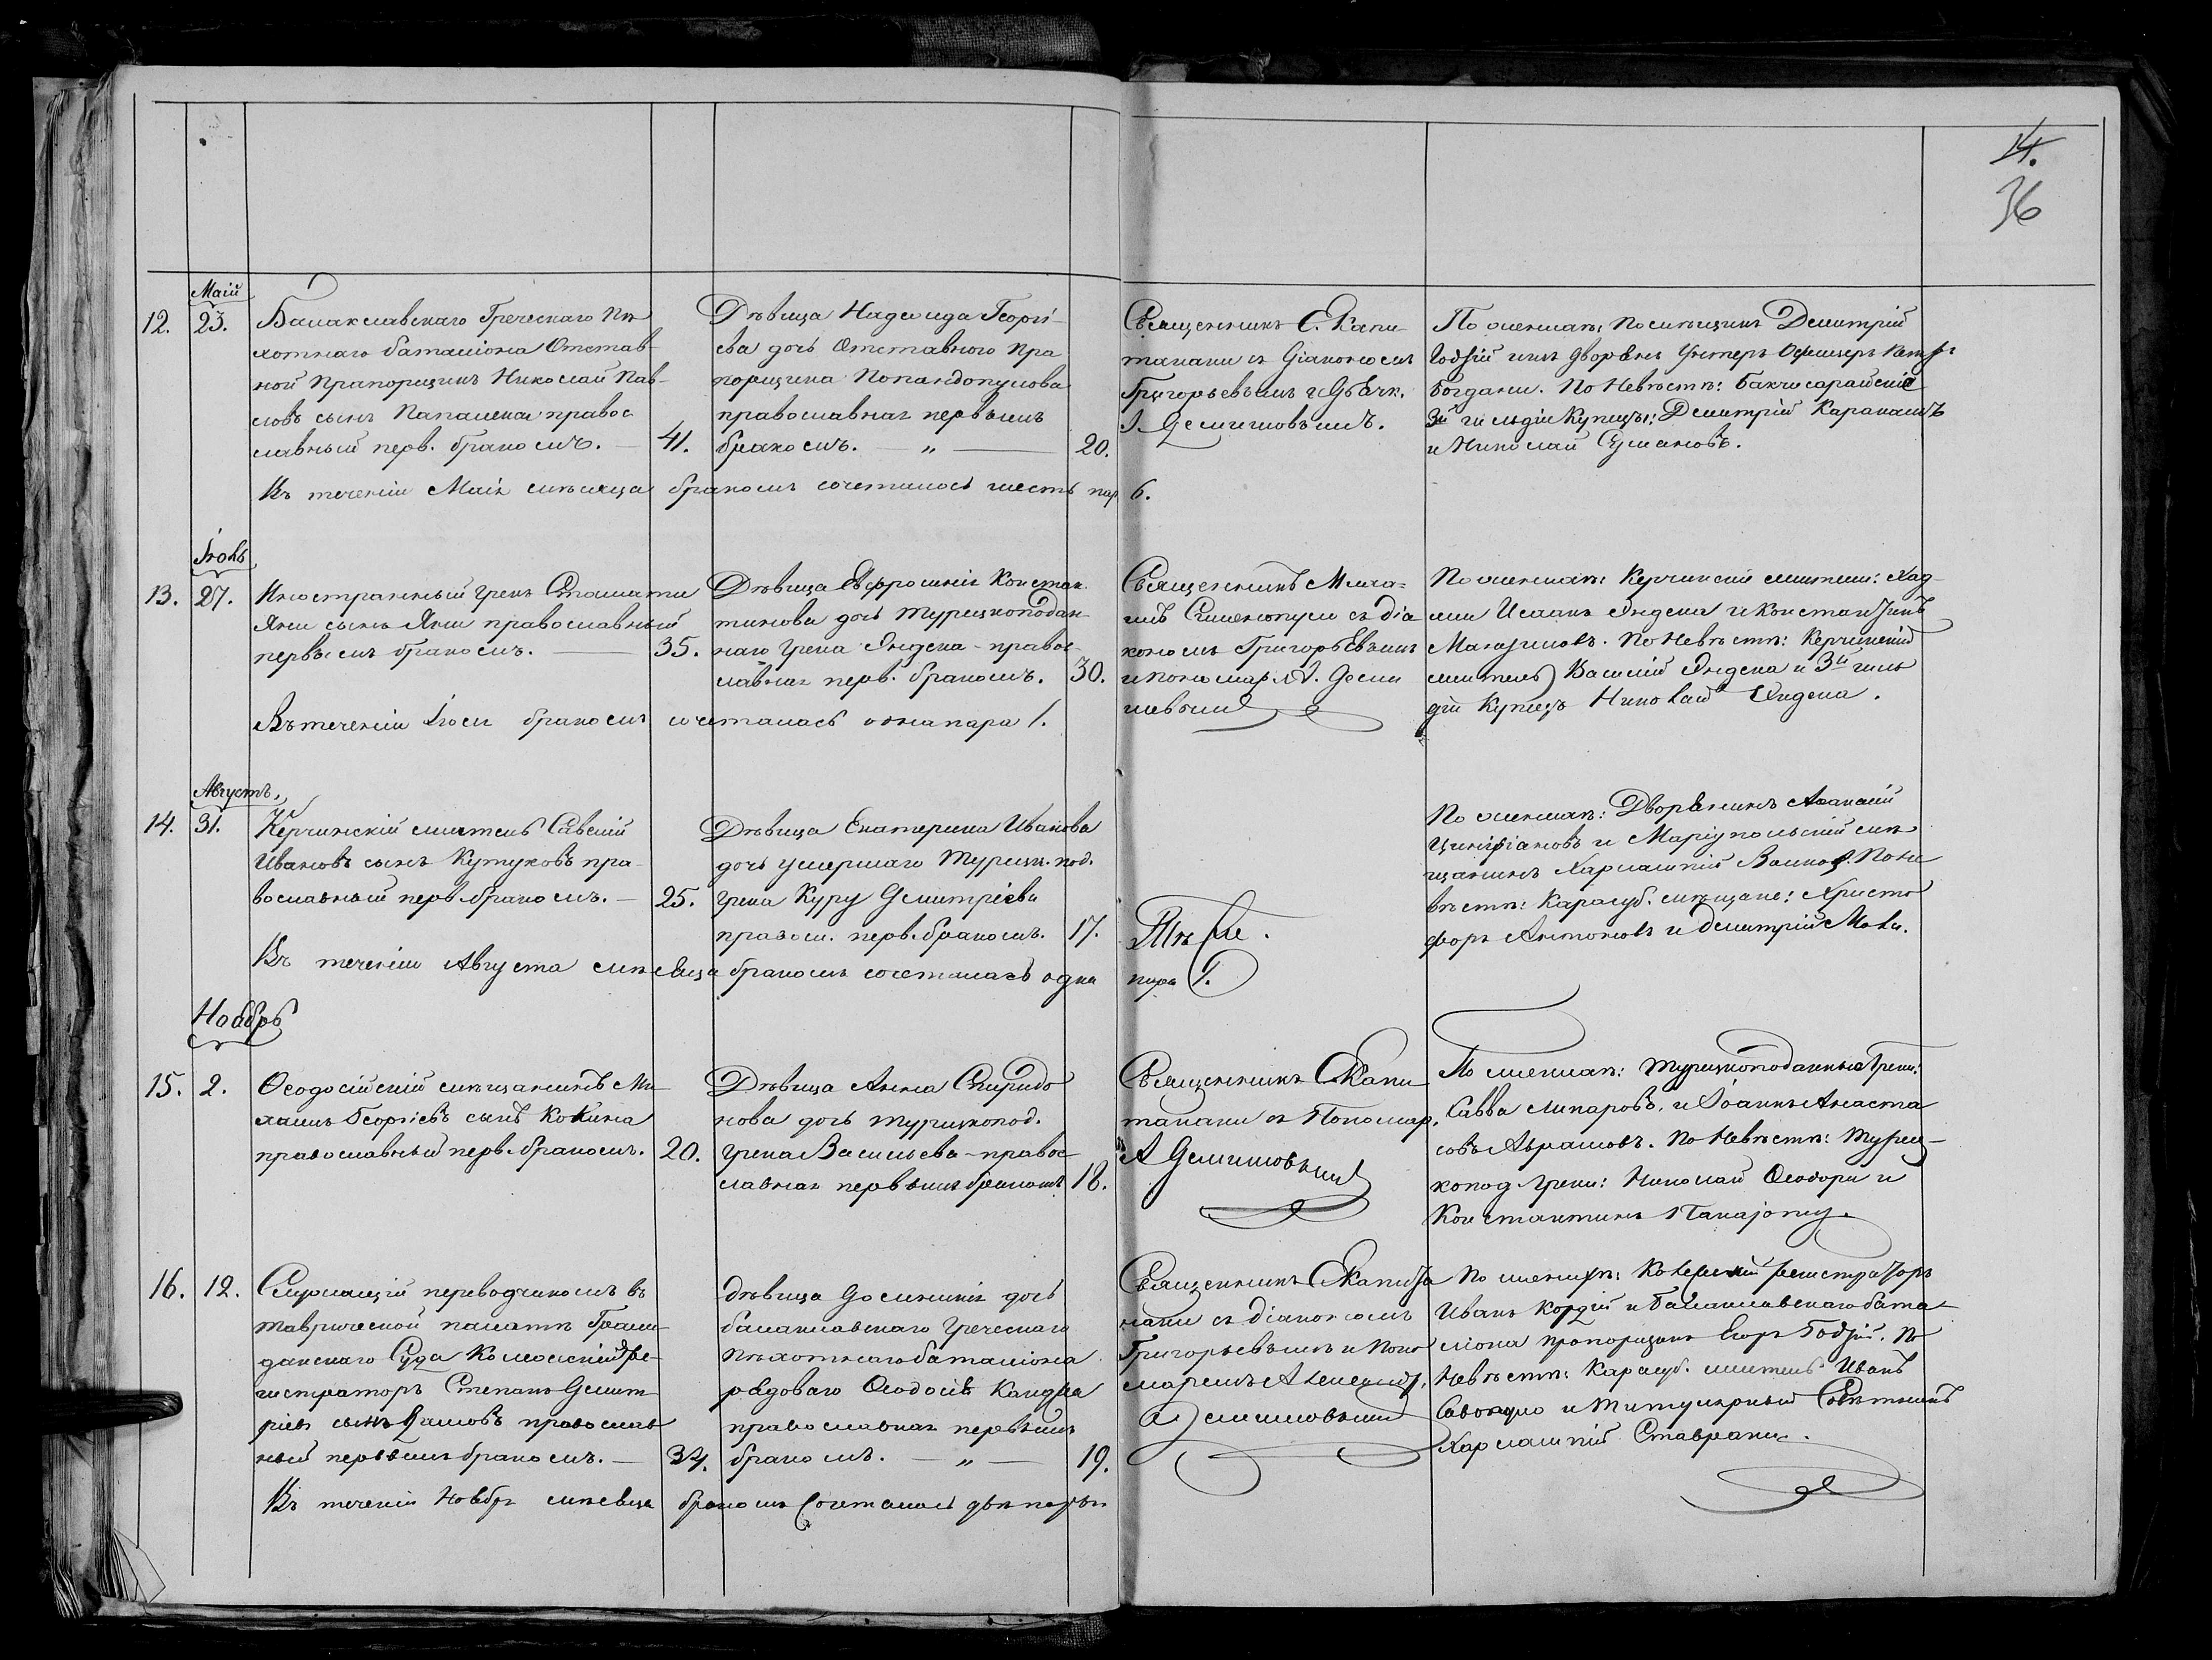 14.
36
Маій
12.
23.
Балаклавскаго Греческаго Пѣ
хотнаго баталіона Отстав-
ной Прапорщикъ Николай Пав-
ловъ сынъ Папалекси правос
лавный перв. бракомъ. —
41.
Дѣвица Надежда Георгі-
ева дочь Отставного Пра
порщика Попандопулова
православная первымъ
бракомъ. — „ —
20.
Священникъ С. Капи
танаки съ Діакономъ
Григорьевымъ и Дьячк.
І. Демишовымъ.
По женихѣ: помѣщикъ Димитрій
Годзій и изъ дворянъ Унтеръ Офицеръ
Богдани. По Невѣстѣ: Бакчисарайскіе
3й гильдіи Купцы: Димитрій Каракашъ
и Николай Сумановъ.
Въ теченіи Маія мѣсяца бракомъ сочеталось шесть пар 6.
Іюнь
13.
27.
Иностранный грекъ Стамати
Яни сынъ Яни православный
первымъ бракомъ. —
35.
Дѣвица Евфросинія Констан
тинова дочь Турецкоподан-
наго грека Яндека - правос
лавная перв. бракомъ.
30.
Священникъ Миха-
илъ съ діа
кономъ Григорьевымъ
и пономар. А. Деми
шевымъ
По женихѣ: Керчинскіе жители: Хад
жи Исаакъ Яндеки и Константинъ
По Невѣстѣ: Керчинскій
житель Василій Яндека и 3й гиль
діи Купецъ Николай Яндека.
Въ теченіи Іюня бракомъ сочеталась одна пара 1.
Августъ,
14.
31.
Керчинскій житель Савелій
Ивановъ сынъ Кутуковъ пра-
вославный перв. бракомъ. —
25.
Дѣвица Екатерина Иванова
дочь умершаго Турецк. под.
грека Куру Димитріева
правосл. перв. бракомъ.
17.
Тѣ же.
По женихѣ: Дворянинъ Афанасій
и Маріупольскій мѣ
щанинъ Харлампій Волков. По не
вѣстѣ: Карасуб. мѣщане: Христо
форъ Антоновъ и Димитрій Мови.
Въ теченіи Августа мѣсяца бракомъ сочеталась одна
пара 1.
Ноябрь
15.
2.
Ѳеодосійскій мѣщанинъ Ми
хаилъ Георгіевъ сынъ Кокина
православный перв. бракомъ.
20.
Дѣвица Анна Спиридо
нова дочь турецкопод.
грека Васильева - правос
лавная первымъ бракомъ
18.
Священникъ С. Капи
танаки съ Пономар.
А Демишовымъ
По женихѣ: Турецкоподанные Греки:
Савва Липаровъ. и Іоаннъ Анаста
совъ Аврамовъ. По Невѣстѣ: Турец-
копод. Греки: Николай Ѳеодори и
Константинъ Панаіоту.
16.
12.
Служащій переводчикомъ въ
Таврической палатѣ Граж-
данскаго Суда Коллежскій Ре-
гистраторъ Степанъ Димит
ріевъ сынъ православ
ный первымъ бракомъ. —
34.
Дѣвица Домникія дочь
балаклавскаго Греческаго
Пѣхотнаго баталіона
рядоваго Ѳеодосія Канджа
православная первымъ
бракомъ. — „ —
19.
Священникъ С. Капита
наки съ діакономъ
Григорьевымъ и Поно
маремъ Александр.
Демишовымъ
По женихѣ: Колежскій регистраторъ
Иванъ Кордій и Балаклавскаго бата-
ліона прапорщикъ Егоръ Годзій. По
Невѣстѣ: Карасуб. житель Иванъ
и Титулярный Совѣтникъ
Харлампій Ставраки.
Въ теченіи Ноября мѣсяца бракомъ сочеталось двѣ пары